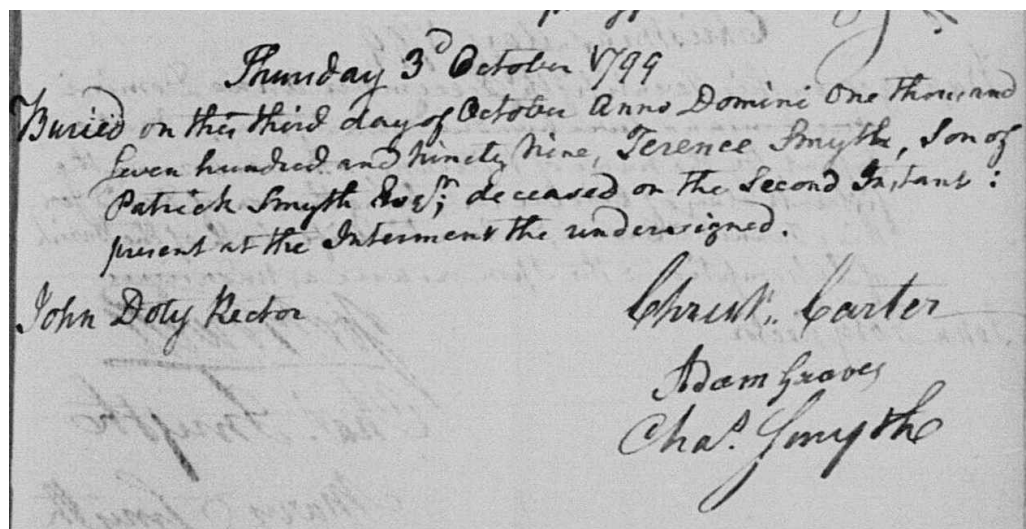 Thursday 3d October 1799
Buried on this third day of October Anno Domini One thousand
Seven hundred and Ninety Nine, Terence Smyth, Son of
Patrick Smyth Esqr; deceased on the Second Instant:
present at the Interment the undersigned.
John Doty Rector
Christr. Carter
Adam Graves
Chas. Smyth